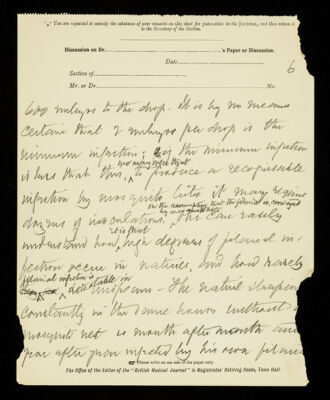 "*" You are requested to embody the substance of your remarks on this sheet for publication in the JOURNAL, and then return it to the Secretary of the Section.
Discussion on Dr. 's Paper or Discussion.
Date
Section of
6
Mr. or Dr. No.
600 embryos to the drop. It is by no means
certain that 2 embryos per drop is the
minimum infection; if the minimum infection
is less than this, to produce a recognisable
infection by mosquito bite it may require
dozens of inoculations. One can easily
understand how it is that high degrees of filarial in-
fection occur in natives, and how rarely
filarial infection is detectable in Europeans - The native sleeping
constantly in the same house without a
mosquito net is month after month and
year after year infected by his own filariae
Please write on one side of the paper only.
The Office of the Editor of the "British Medical Journal" is Magistrates' Retiring Room, Town Hall.